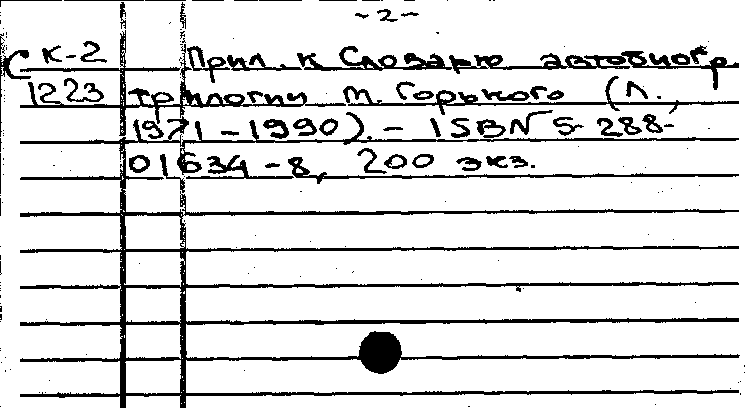 -2-
С К-2 Прил. к Словарю автобиогр.
1223 трилогии М. Горького (Л.,
1971-1990). - ISBN 5-288-
01634-8, 200 экз.